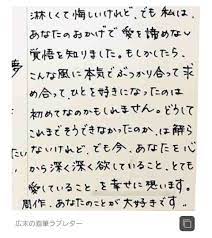 淋しくて悔しいけれど、でも私は、
あなたのおかげで愛を諦めない
覚悟を知りました。もしかしたら、
こんな風に本気でぶつかり合って求
め合って、ひとを好きになったのは
初めてなのかもしれません。どうして
これまでそうできなかったのか、は解ら
ないけれど、でも今、あなたを心
から深く深く欲していること、とても
愛していること、を幸せに思います。
周作、あなたのことが大好きです。
夢
たい
広末の直筆ラブレター